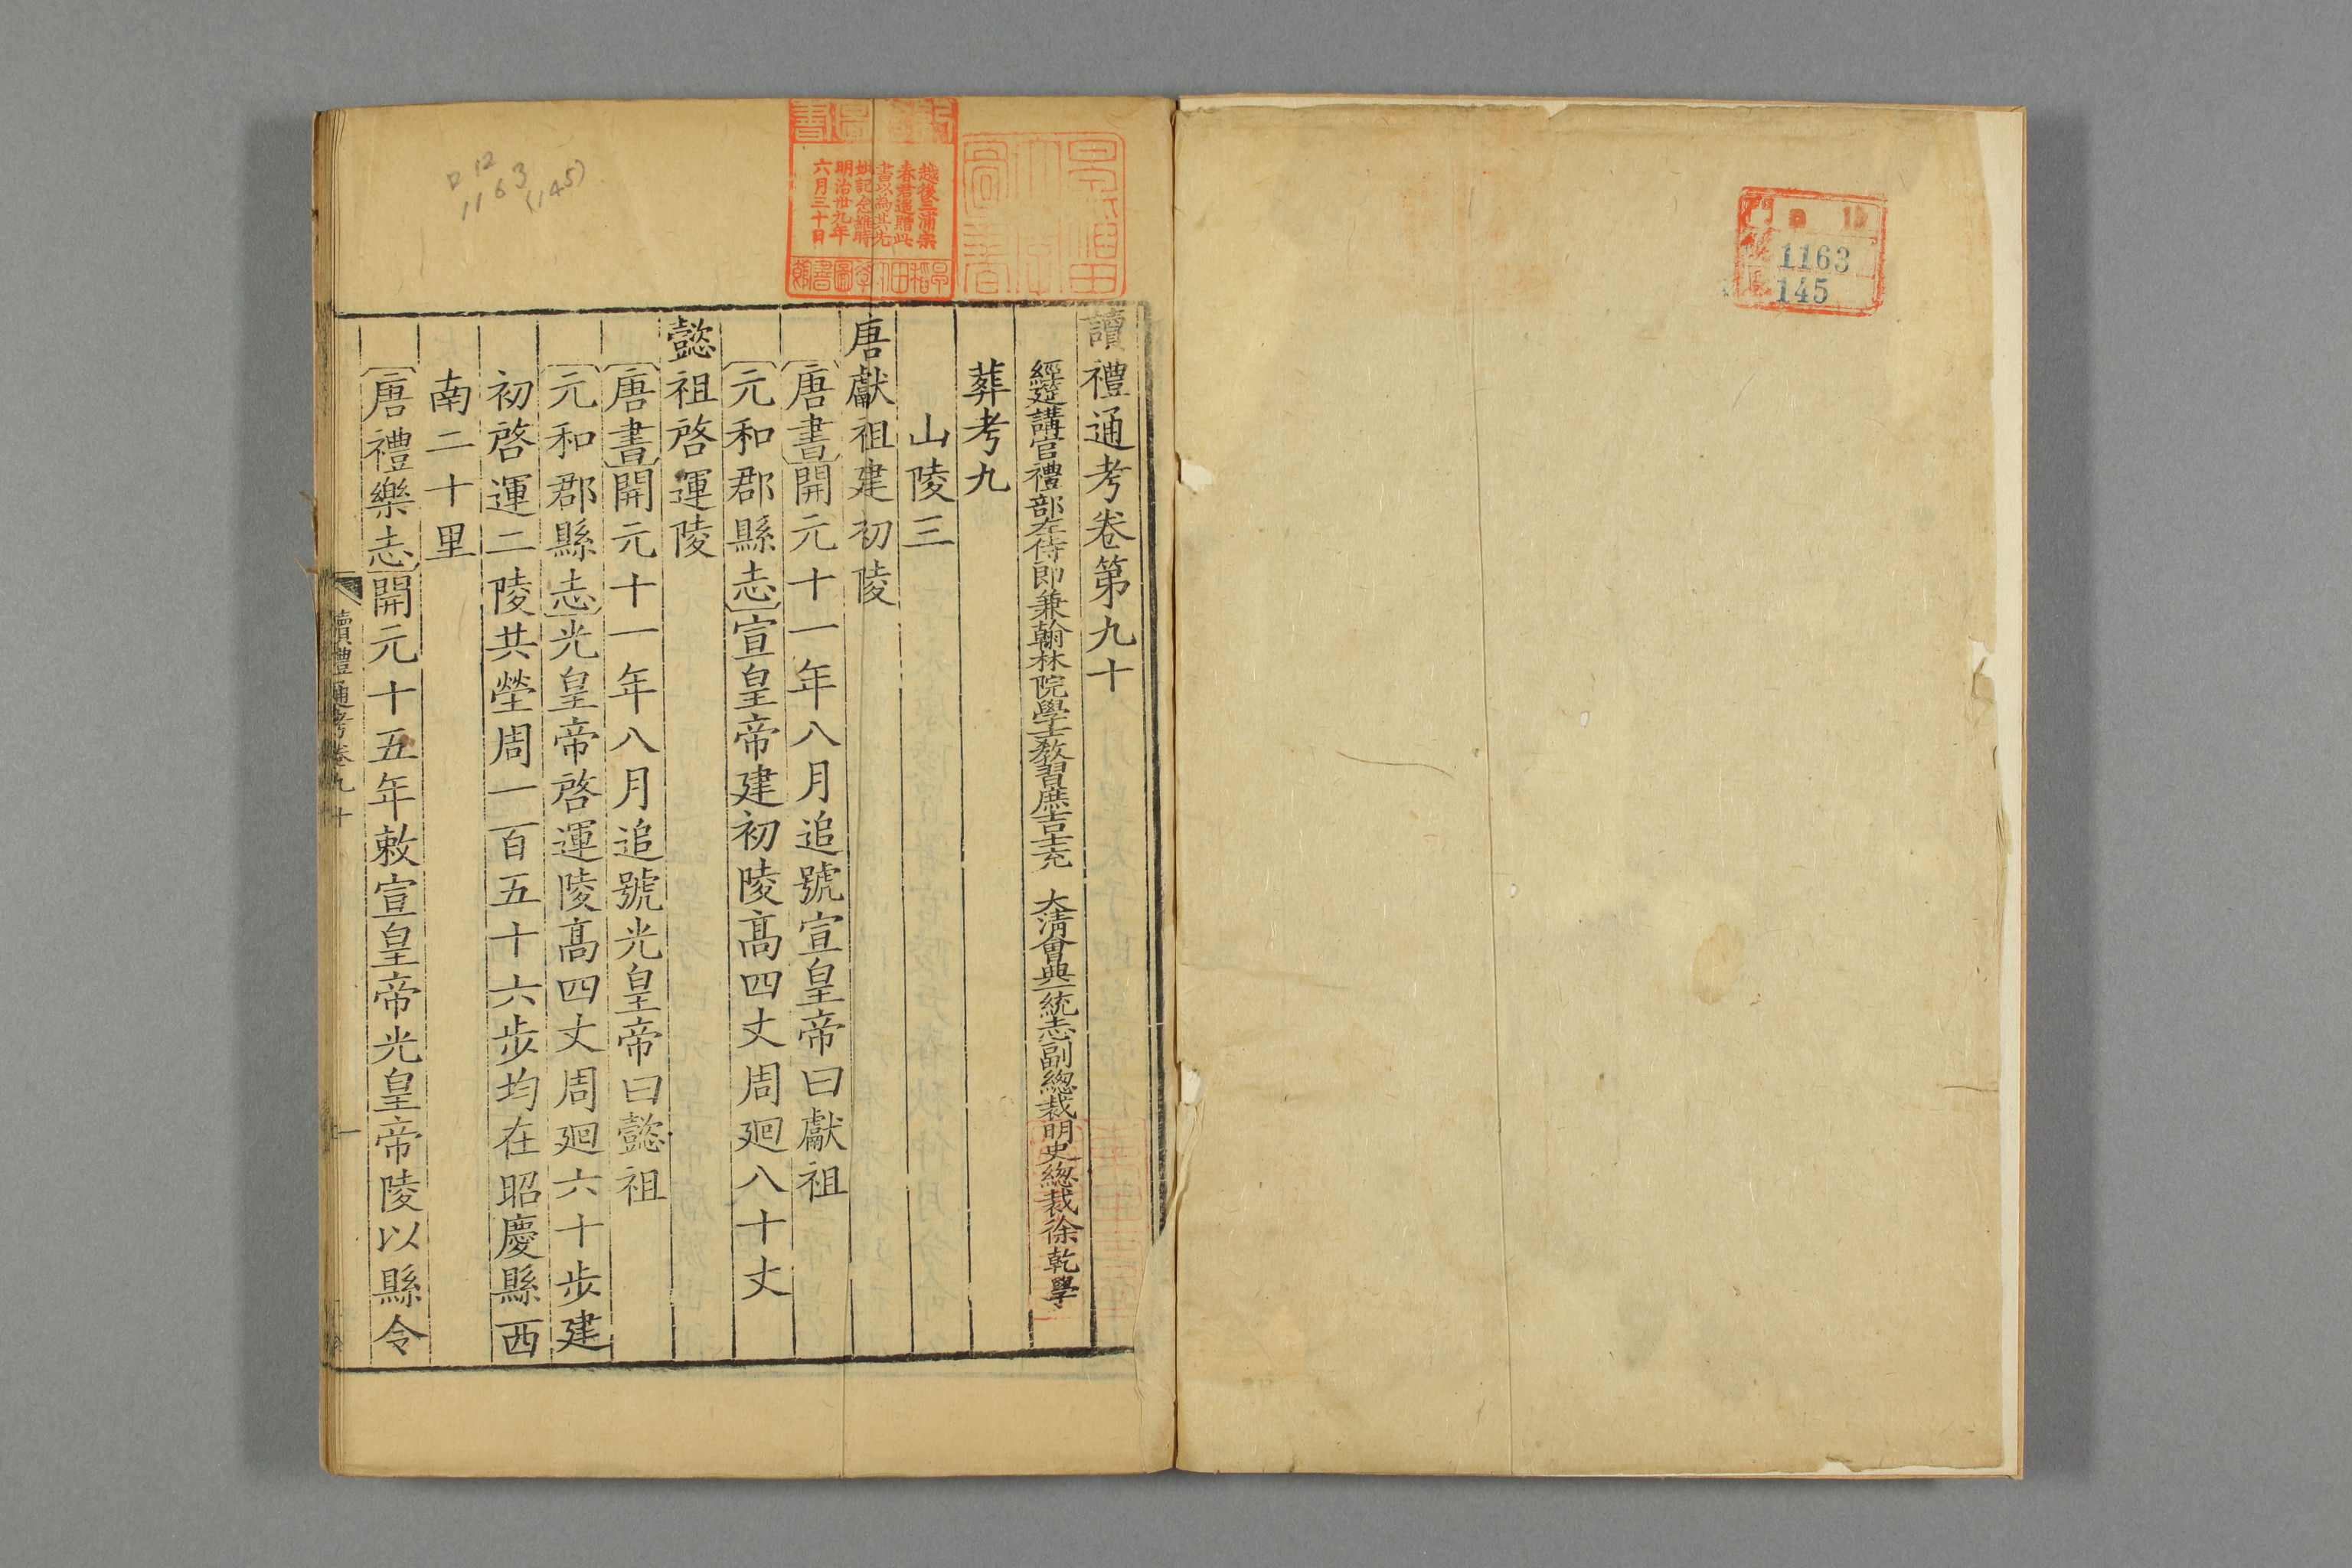 1163
145
讀禮通考卷第九十
經筵講官禮部左侍郎兼翰林院學士教習庶吉士充　大清會典一統志副總裁明史總裁徐乾學
葬考九
山陵三
唐獻祖建初陵
〔唐書〕開元十一年八月追號宣皇帝曰獻祖
〔元和郡縣志〕宣皇帝建初陵高四丈周廻八十丈
懿祖啓運陵
〔唐書〕開元十一年八月追號光皇帝曰懿祖
〔元和郡縣志〕光皇帝啓運陵高四丈周廻六十步建
初啓運二陵共塋周一百五十六步均在昭慶縣西
南二十里
〔唐禮樂志〕開元十五年敕宣皇帝光皇帝陵以縣令
讀禮通考卷九十
一
越後三浦宗
春君遥贈此
書以為其先
妣記念維時
明治卅九年
六月三十日
早稻田大學圖書館
12
1163
(145)